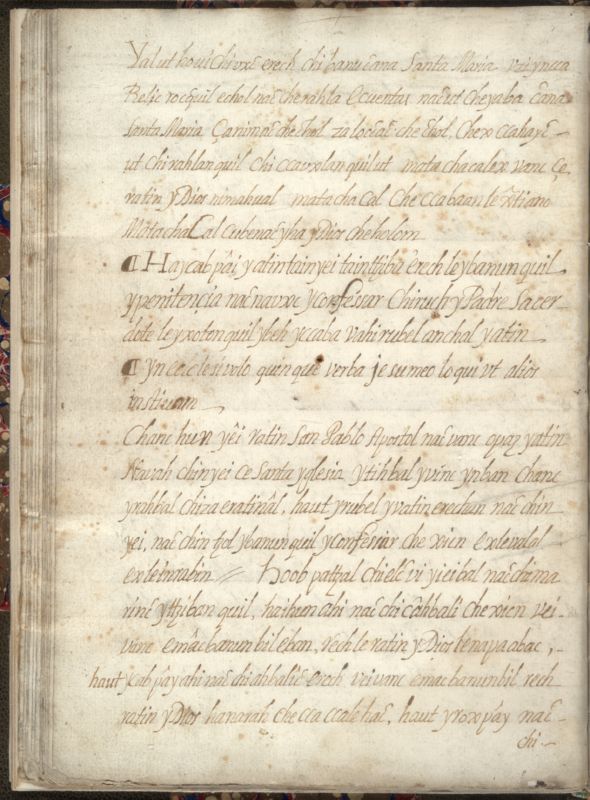 Yalut houi chiuxc erech chi banu cana Santa Maria vaiyncca
Relic rocquil echol nac cherahla Ccuentas nacut cheyaba cana
Santa Maria Canimac chechol zalociac chechol, Chex ccahayc
ut chirahlanquil chi ccauxlanquilut matachacalex vanc Ce
ratin yDios nimahual matacha Cal Che ccabaanle xtiano
Mata cha Cal cubenac yha yDios cheholom
¶ Hay cab pai yatintainyei taintzibá erech leybanunquil
ypenitencia nac nauxc yconfessar Chiruch y Padre Sacer
dote leyxotonquil ybeh yccaba Vahirubel anchal yatin
¶ Yn Ecclesi volo quinque verba je su meo loqui vt alios
instruam
Chanc hun yei ratin San Pablo Apostol nac vanc quaz yatin
Navah chinyei Ce Santa yglesia ytihbal yvinc ynban Chanc
yrahbal chiza eratinal, haut yrubel yvatin erechan nac chin
yei, nac chin tzol ybanunquil yconfessar che xien exlevalal
exleinrabin Hoob pattzal chielc vi yieibal nac chima
rinc ytziban quil, hai hun ahi nac chi cahbali che xien vei
vanc emac banunbil eban, rech le ratin yDios lenapaabac,
haut ycab pay ahi nac chi ahbalic erech vei vanc emac banunbil rech
ratin yDios hanarah checcaccalehac, haut yrox pay nac
chi